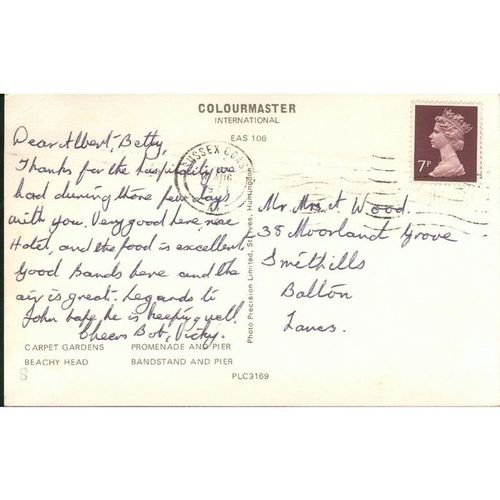 COLOURMASTER
INTERNATIONAL
EAS 106
Dear Albert, Betty,
Thanks for the hospitality we
had during those few days
with you. Very good here nice
Hotel, and the food is excellent
Good Bands here and the
air is great. Regards to
John hope he is keeping well.
Cheers Bob, Vicky.
CARPET GARDENS PROMENADE AND PIER
BEACHY HEAD BANDSTAND AND PIER
PLC3169
Photo Precision Limited, St. Ives, Huntingdon
SUSSEX COAST
AUG
7P
Mr. Mrs A Wood.
38 Moorland Grove
Smithills
Bolton
Lancs.
8